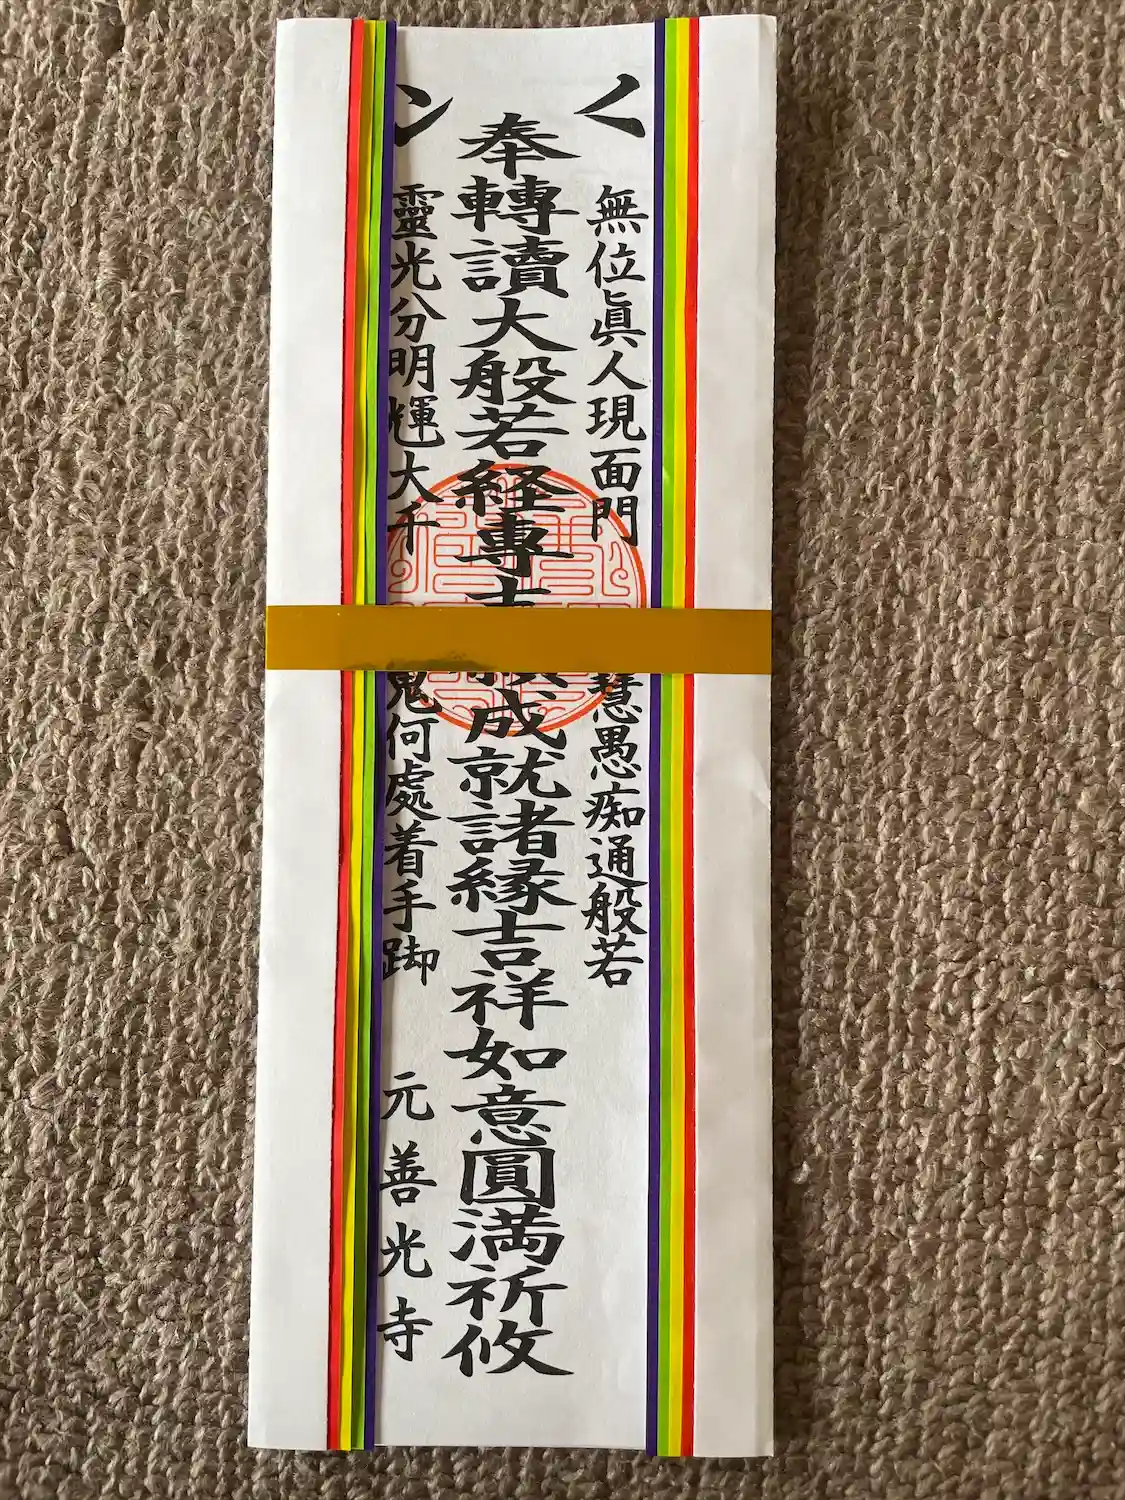 無位眞人現面門 慧愚痴通般若
奉轉讀大般若経專 成就諸縁吉祥如意圓満祈攸
靈光分明輝大千 鬼何處着手脚 元善光寺